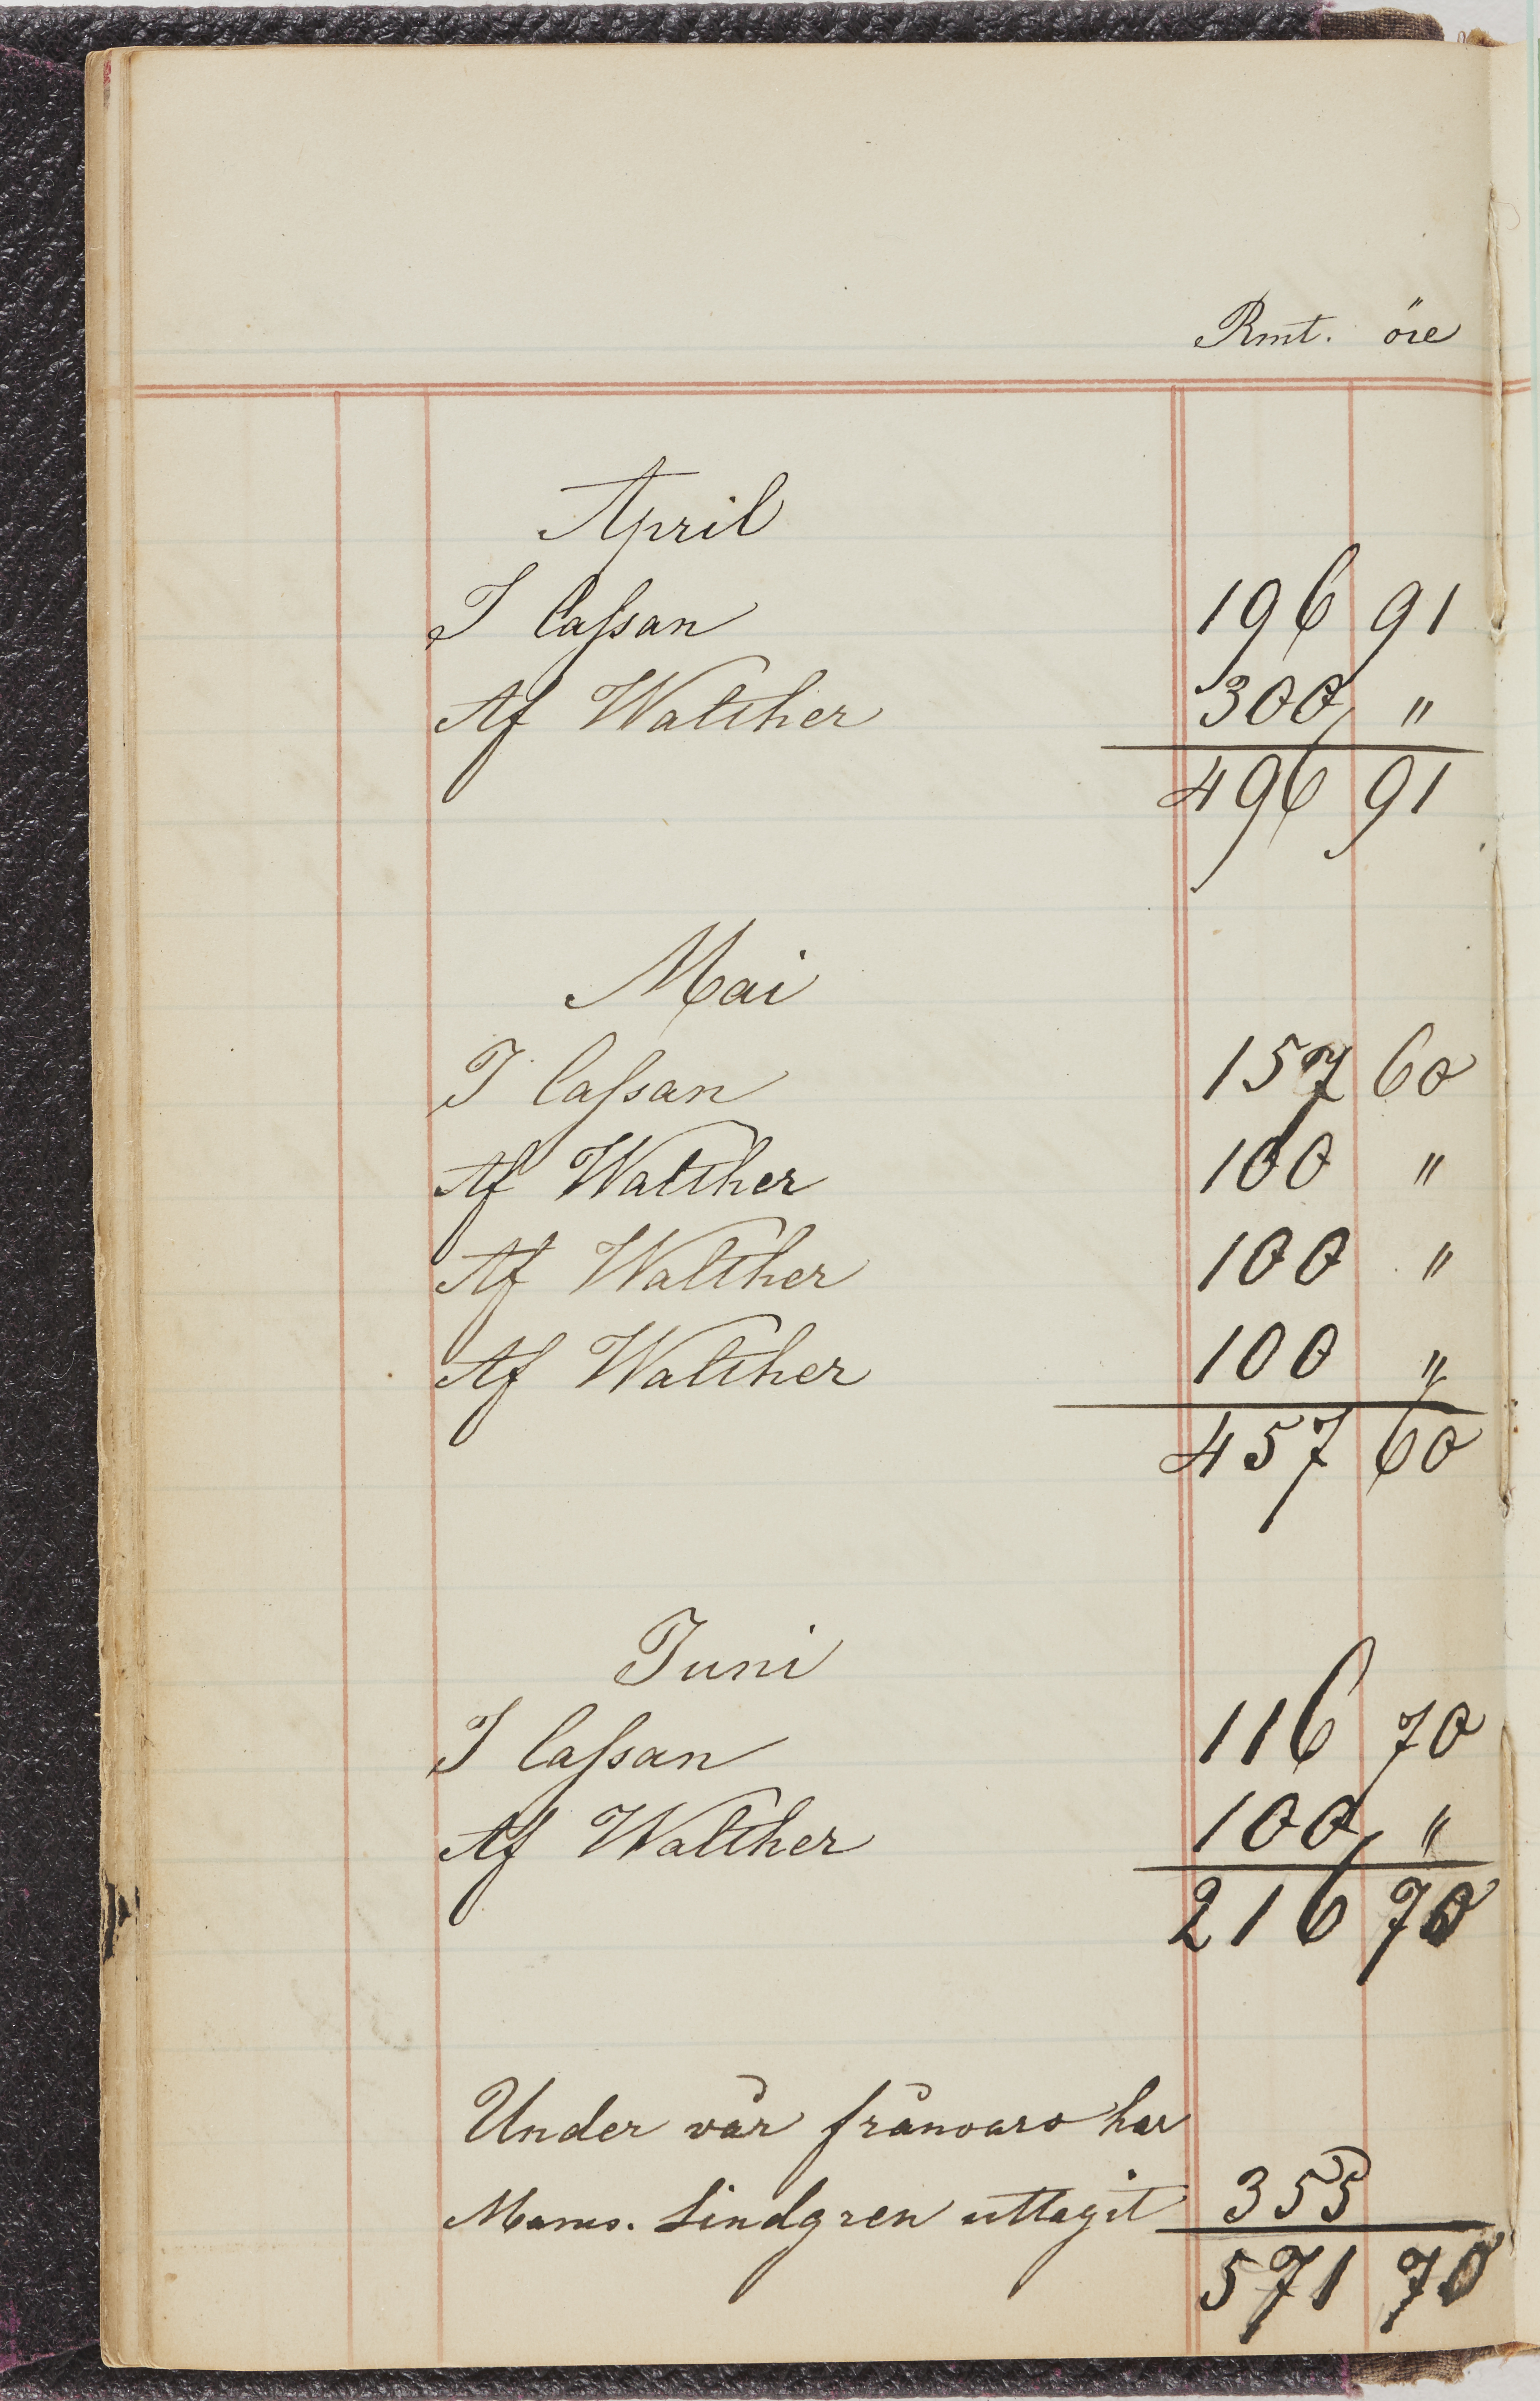 Rmt. öre
April
I Cassan 196 91
Af Walther 300 "
496 91
Mai
I Cassan 157 60
Af Walther 100 "
Af Walther 100 "
Af Walther 100 "
457 60
Juni
I Cassan 116 70
Af Walther 100 "
216 70
Under vår frånvaro har
Mams. Lindgren uttagit 355
571 70